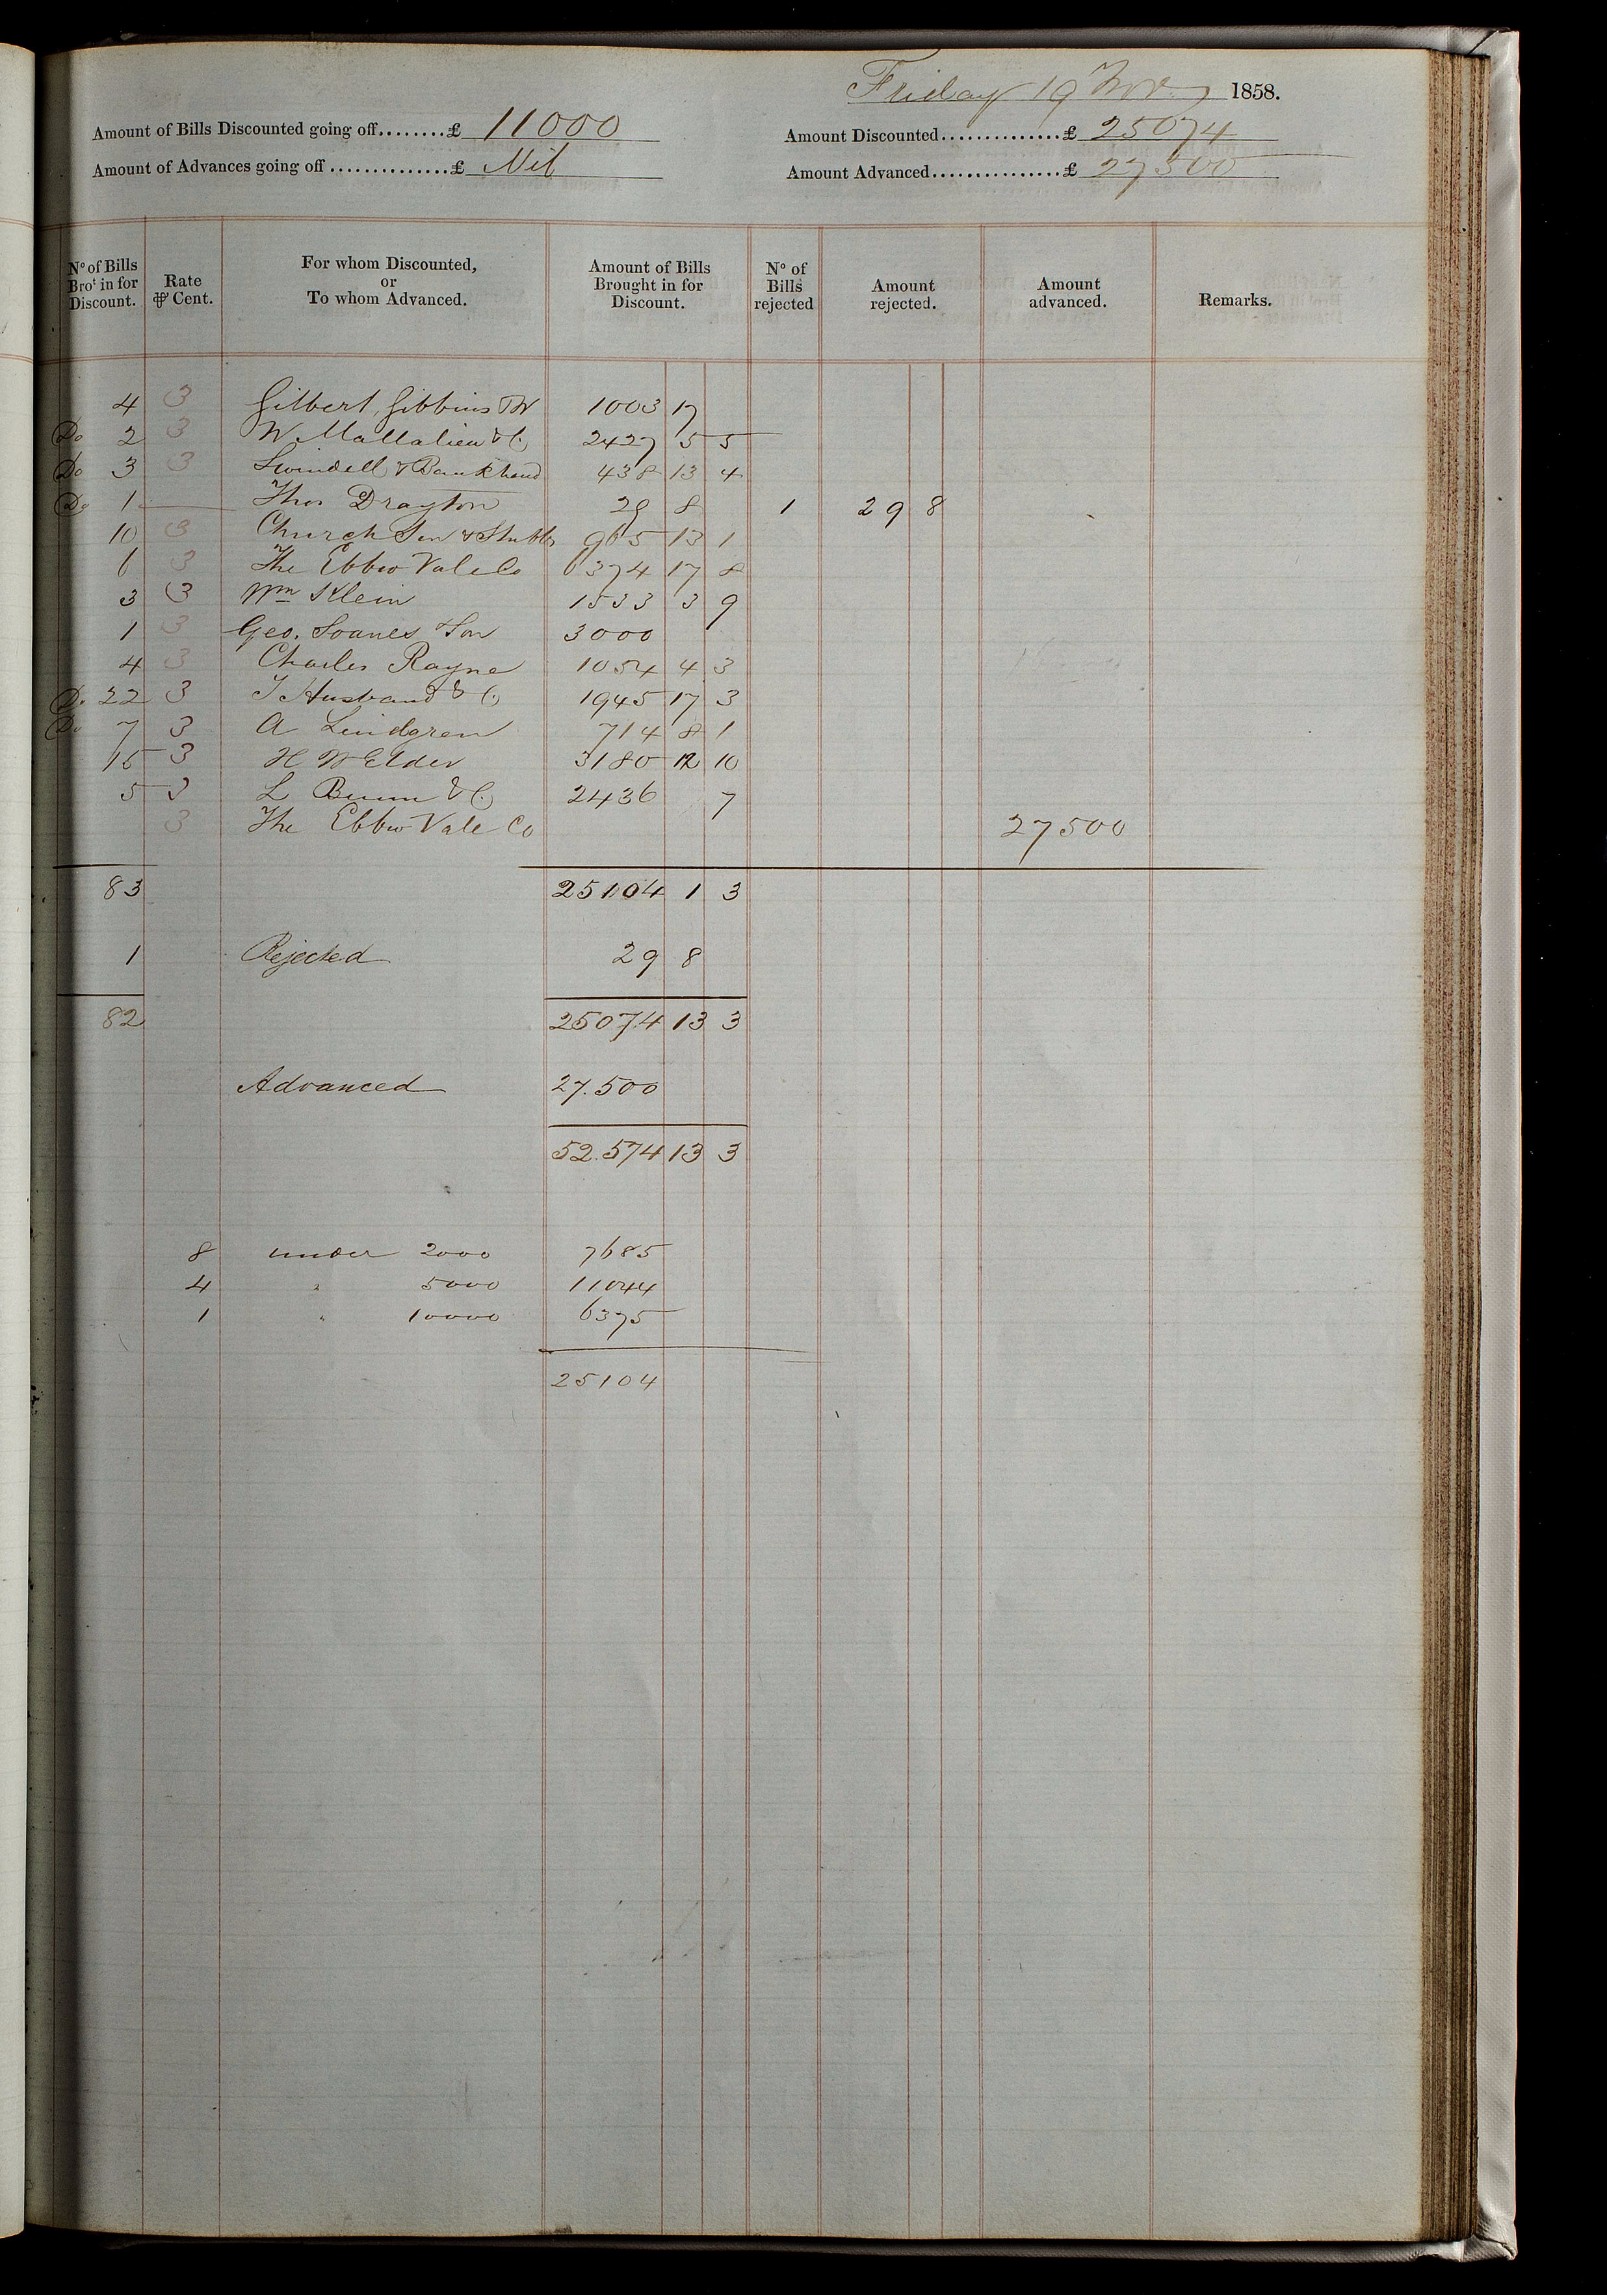 Friday 19 Novr 1858.
Amount of Bills Discounted going off........£ 11000 Amount Discounted..............£ 25074
Amount of Advances going off..............£ Nil Amount Advanced...............£ 27500
No of Bills Brot in for Discount. Rate ⅌ Cent. For whom Discounted, or To whom Advanced. Amount of Bills Brought in for Discount. No of Bills rejected Amount rejected. Amount advanced. Remarks.
4 3 Gilbert, Gibbins 1003 17
Do 2 3 W Mallalieu & Co 2427 5 5
Do 3 3 Swindell & Bankhead 438 13 4
Do 1 Thos Drayton 29 8 1 29 8
10 3 Church Son & Stubbs 965 13 1
6 3 The Ebbw Vale Co 6374 17 8
3 3 Wm Klein 1533 3 9
1 3 Geo. Soanes & Son 3000
4 3 Charles Rayne 1054 4 3
Do 22 3 T Husband & Co 1945 17 3
Do 7 3 A Lindgren 714 8 1
15 3 H W Elder 3180 12 10
5 3 L & Co 2436 7
3 The Ebbw Vale Co 27500
83 25104 1 3
1 Rejected 29 8
82 25074 13 3
Advanced 27.500
52.574 13 3
8 under 2000 7685
4 " 5000 11044
1 " 10000 6375
25104